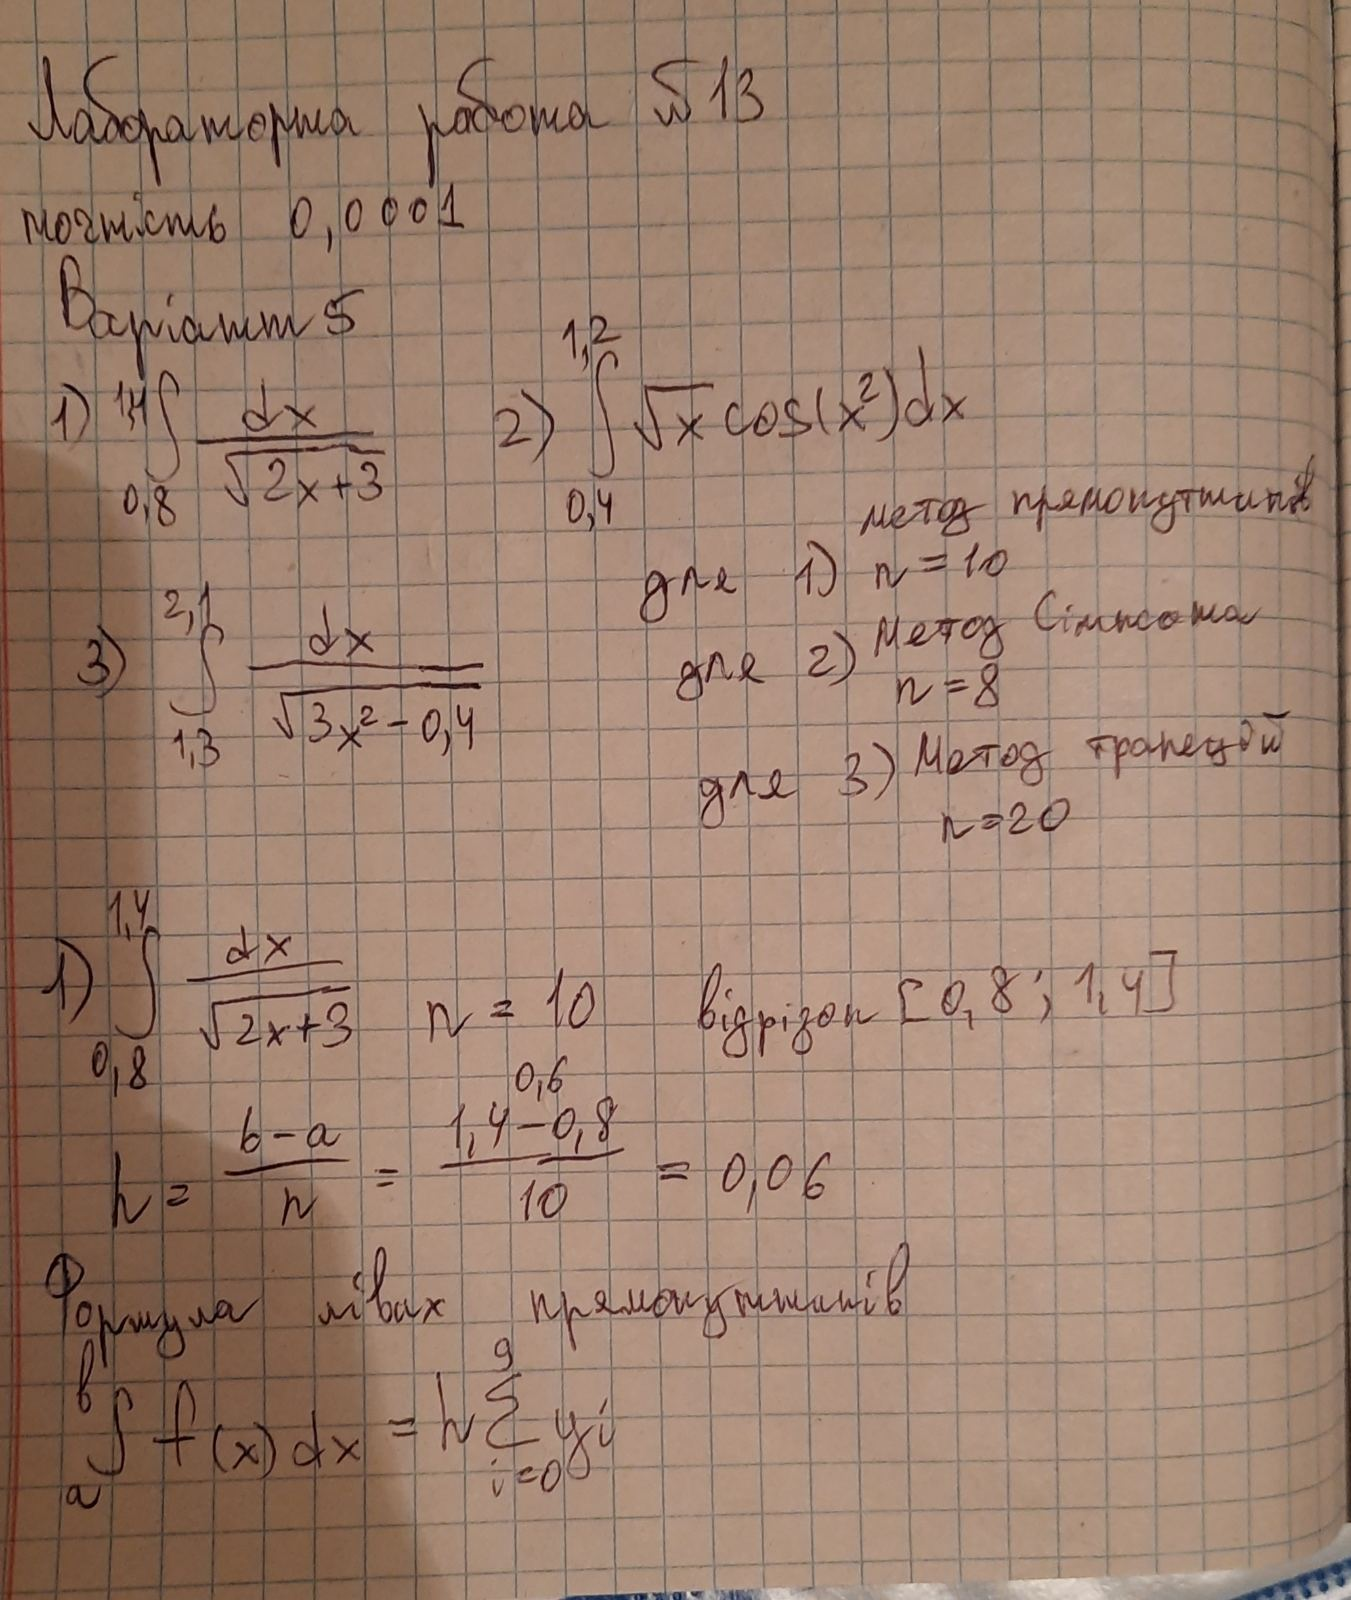 Лабораторна робота №13
точність 0,0001
Варіант 5
1) ∫_{0,8}^{1,4} dx/√(2x+3) 2) ∫_{0,4}^{1,2} √x cos(x²)dx
метод прямокутників
для 1) n=10
3) ∫_{1,3}^{2,1} dx/√(3x²-0,4)
для 2) Метод Сімпсона
n=8
для 3) Метод трапецій
n=20
1) ∫_{0,8}^{1,4} dx/√(2x+3) n = 10 відрізок [0,8; 1,4]
0,6
h = (b-a)/n = (1,4-0,8)/10 = 0,06
Формула лівах прямокутників
∫_a^b f(x)dx = h ∑_{i=0}^{9} yi